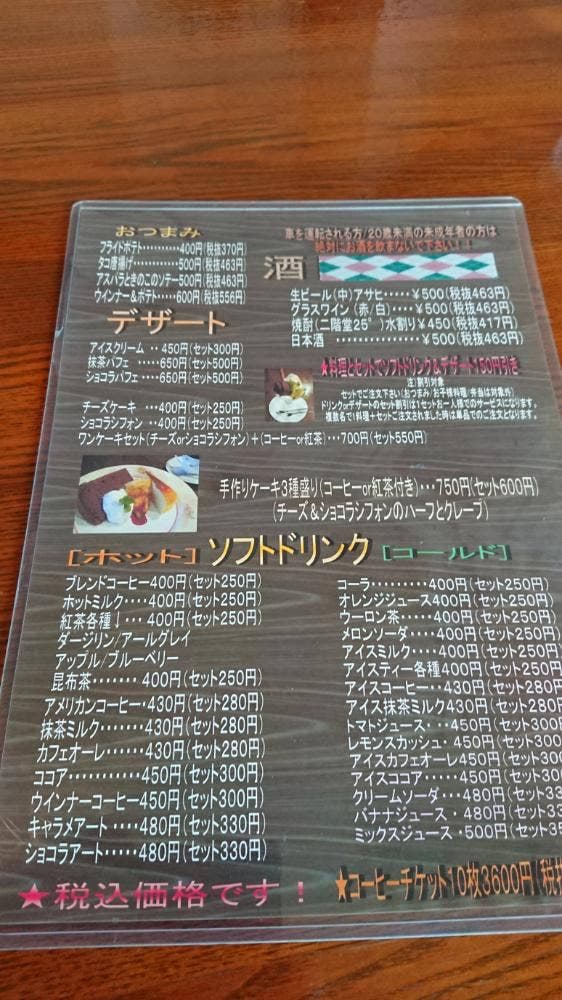 おつまみ
フライドポテト・・・・・・・・・・400円(税抜370円)
タコ唐揚げ・・・・・・・・・・・500円(税抜463円)
アスパラときのこのソテー500円(税抜463円)
ウインナー＆ポテト・・・・・600円(税抜556円)
デザート
アイスクリーム ・・450円(セット300円)
抹茶パフェ ・・・・650円(セット500円)
ショコラパフェ・・・・650円(セット500円)
チーズケーキ ・・400円(セット250円)
ショコラシフォン ・・400円(セット250円)
ワンケーキセット(チーズorショコラシフォン)＋(コーヒーor紅茶)・・・700円(セット550円)
車を運転される方/20歳未満の未成年者の方は
絶対にお酒を飲まないで下さい！！
酒
生ビール(中)アサヒ・・・・・￥500(税抜463円)
グラスワイン(赤/白)・・・・￥500(税抜463円)
焼酎(二階堂25°)水割り￥450(税抜417円)
日本酒 ・・・・・・・・・・・・・・￥500(税抜463円)
★料理とセットでソフトドリンク＆デザート150円引き
注)割引対象
セットでご注文下さい(おつまみ/お子様料理/弁当は対象外)
ドリンクorデザートのセット割引は1セットお一人様でのサービスになります。
複数名で1料理＋セットご注文されました時は単品でのご注文となります。
手作りケーキ3種盛り(コーヒーor紅茶付き)・・・750円(セット600円)
(チーズ＆ショコラシフォンのハーフとクレープ)
[ホット]ソフトドリンク[コールド]
ブレンドコーヒー400円(セット250円)
ホットミルク・・・・400円(セット250円)
紅茶各種↓・・・400円(セット250円)
ダージリン/アールグレイ
アップル/ブルーベリー
昆布茶・・・・・・・400円(セット250円)
アメリカンコーヒー・430円(セット280円)
抹茶ミルク・・・・・430円(セット280円)
カフェオーレ・・・・430円(セット280円)
ココア・・・・・・・・・・450円(セット300円)
ウインナーコーヒー450円(セット300円)
キャラメアート・・・・・480円(セット330円)
ショコラアート・・・・・480円(セット330円)
コーラ・・・・・・・・・400円(セット250円)
オレンジジュース400円(セット250円)
ウーロン茶・・・・・400円(セット250円)
メロンソーダ・・・・400円(セット250円)
アイスミルク・・・・400円(セット250円)
アイスティー各種400円(セット250円)
アイスコーヒー・・430円(セット280円
アイス抹茶ミルク430円(セット280円
トマトジュース・・・450円(セット300円
レモンスカッシュ・450円(セット300円
アイスカフェオーレ450円(セット300円
アイスココア・・・・・450円(セット300
クリームソーダ・・・480円(セット33
バナナジュース・・480円(セット33
ミックスジュース・500円(セット35
★税込価格です！
★コーヒーチケット10枚3600円(税抜